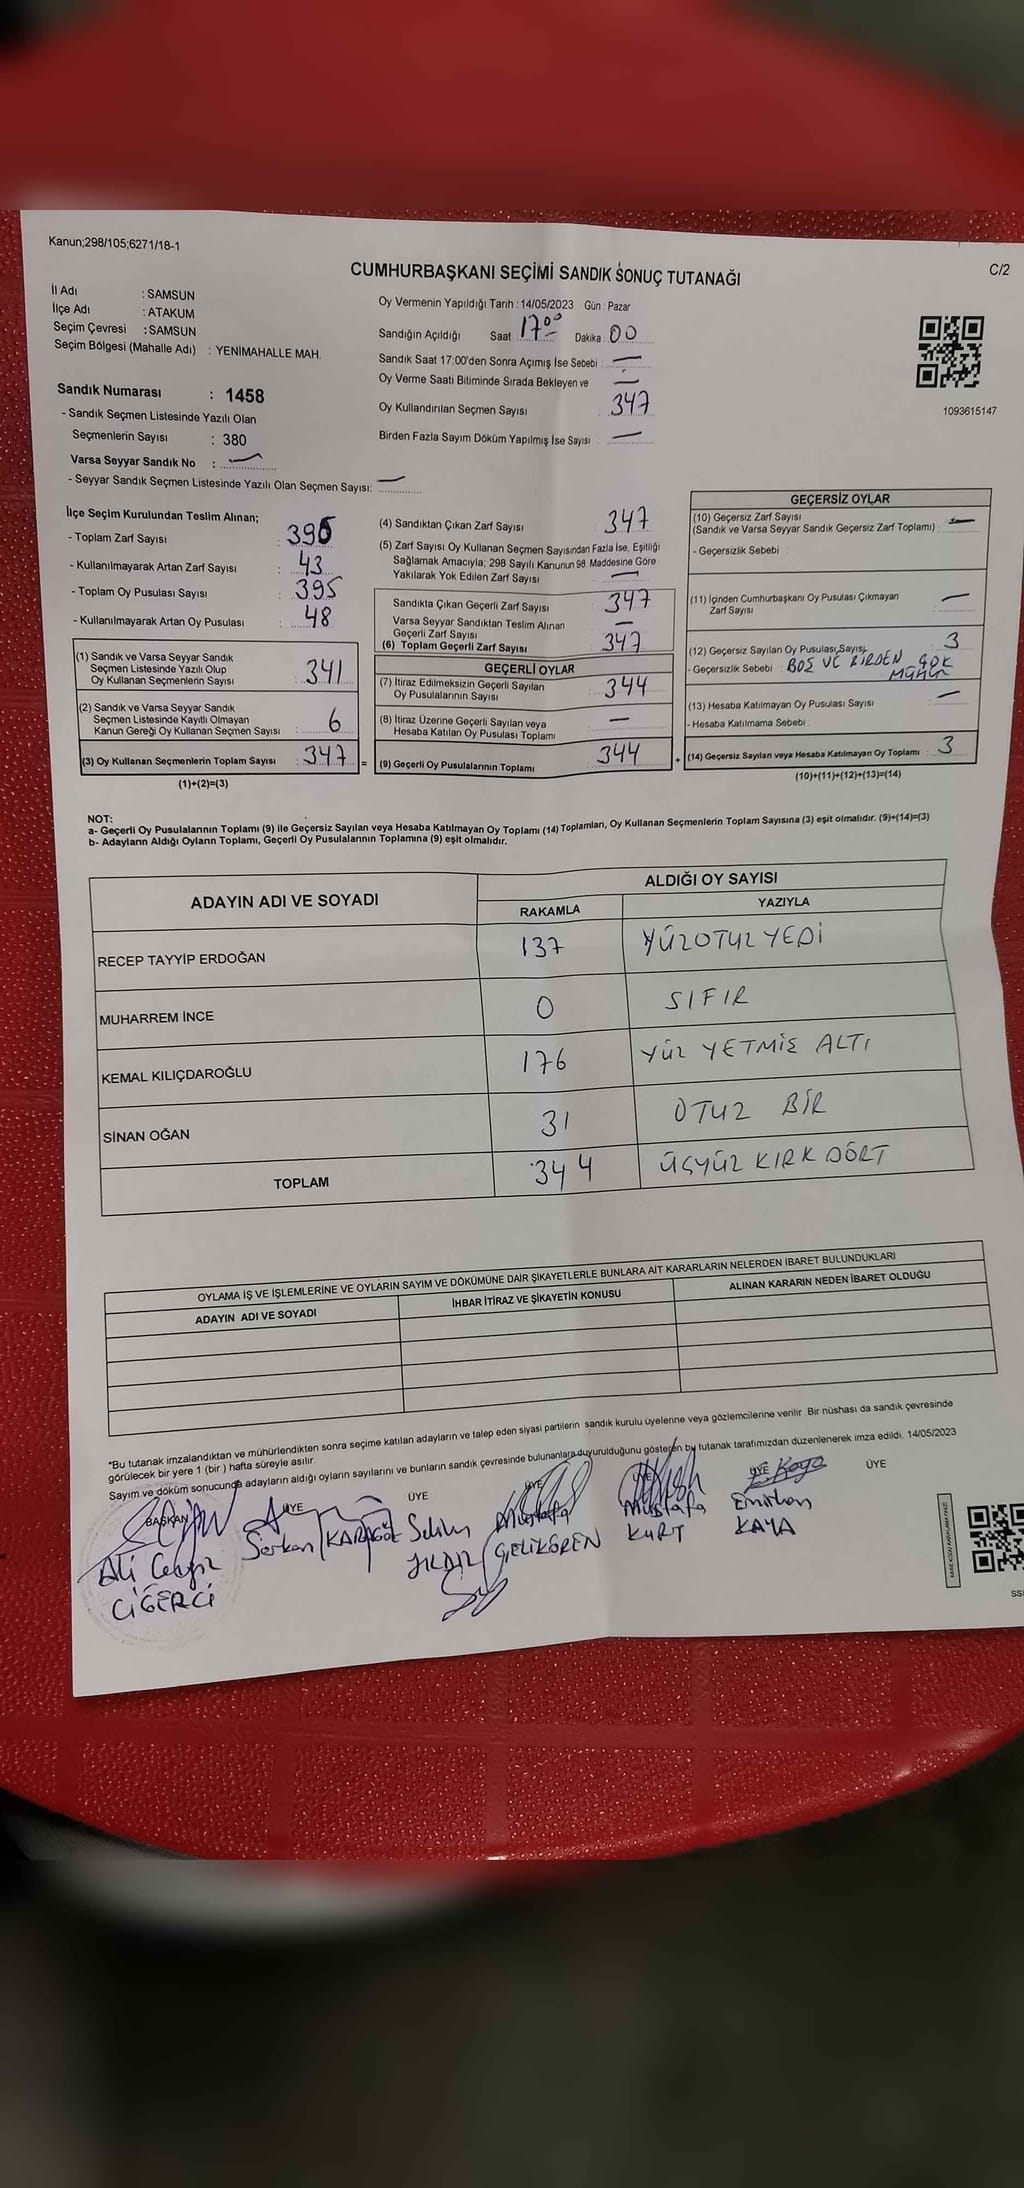 Kanun;298/105;6271/18-1
C/2
CUMHURBAŞKANI SEÇİMİ SANDIK SONUÇ TUTANAĞI
İl Adı : SAMSUN
İlçe Adı : ATAKUM
Seçim Çevresi : SAMSUN
Seçim Bölgesi (Mahalle Adı) : YENİMAHALLE MAH.
Sandık Numarası : 1458
- Sandık Seçmen Listesinde Yazılı Olan
Seçmenlerin Sayısı : 380
Varsa Seyyar Sandık No : —
- Seyyar Sandık Seçmen Listesinde Yazılı Olan Seçmen Sayısı: —
Oy Vermenin Yapıldığı Tarih : 14/05/2023 Gün : Pazar
Sandığın Açıldığı Saat : 17:00 Dakika : 00
Sandık Saat 17:00'den Sonra Açımış İse Sebebi : —
Oy Verme Saati Bitiminde Sırada Bekleyen ve —
Oy Kullandırılan Seçmen Sayısı 347
Birden Fazla Sayım Döküm Yapılmış İse Sayısı : —
1093615147
İlçe Seçim Kurulundan Teslim Alınan;
- Toplam Zarf Sayısı : 390
- Kullanılmayarak Artan Zarf Sayısı : 43
- Toplam Oy Pusulası Sayısı : 395
- Kullanılmayarak Artan Oy Pusulası : 48
(1) Sandık ve Varsa Seyyar Sandık
Seçmen Listesinde Yazılı Olup
Oy Kullanan Seçmenlerin Sayısı : 341
(2) Sandık ve Varsa Seyyar Sandık
Seçmen Listesinde Kayıtlı Olmayan
Kanun Gereği Oy Kullanan Seçmen Sayısı : 6
(3) Oy Kullanan Seçmenlerin Toplam Sayısı : 347 =
(1)+(2)=(3)
(4) Sandıktan Çıkan Zarf Sayısı : 347
(5) Zarf Sayısı Oy Kullanan Seçmen Sayısından Fazla İse, Eşitliği
Sağlamak Amacıyla; 298 Sayılı Kanunun 98. Maddesine Göre
Yakılarak Yok Edilen Zarf Sayısı : —
Sandıkta Çıkan Geçerli Zarf Sayısı : 347
Varsa Seyyar Sandıktan Teslim Alınan
Geçerli Zarf Sayısı : —
(6) Toplam Geçerli Zarf Sayısı : 347
GEÇERLİ OYLAR
(7) İtiraz Edilmeksizin Geçerli Sayılan
Oy Pusulalarının Sayısı : 344
(8) İtiraz Üzerine Geçerli Sayılan veya
Hesaba Katılan Oy Pusulası Toplamı : —
(9) Geçerli Oy Pusulalarının Toplamı : 344 +
GEÇERSİZ OYLAR
(10) Geçersiz Zarf Sayısı
(Sandık ve Varsa Seyyar Sandık Geçersiz Zarf Toplamı) : —
- Geçersizlik Sebebi :
(11) İçinden Cumhurbaşkanı Oy Pusulası Çıkmayan
Zarf Sayısı : —
(12) Geçersiz Sayılan Oy Pusulası Sayısı : 3
- Geçersizlik Sebebi : BOŞ VE BİRDEN ÇOK
MÜHÜR
(13) Hesaba Katılmayan Oy Pusulası Sayısı : —
- Hesaba Katılmama Sebebi :
(14) Geçersiz Sayılan veya Hesaba Katılmayan Oy Toplamı : 3
(10)+(11)+(12)+(13)=(14)
NOT:
a- Geçerli Oy Pusulalarının Toplamı (9) ile Geçersiz Sayılan veya Hesaba Katılmayan Oy Toplamı (14) Toplamları, Oy Kullanan Seçmenlerin Toplam Sayısına (3) eşit olmalıdır. (9)+(14)=(3)
b- Adayların Aldığı Oyların Toplamı, Geçerli Oy Pusulalarının Toplamına (9) eşit olmalıdır.
ADAYIN ADI VE SOYADI ALDIĞI OY SAYISI
RAKAMLA YAZIYLA
RECEP TAYYİP ERDOĞAN 137 YÜZOTUZYEDİ
MUHARREM İNCE 0 SIFIR
KEMAL KILIÇDAROĞLU 176 YÜZ YETMİŞ ALTI
SİNAN OĞAN 31 OTUZ BİR
TOPLAM 344 ÜÇYÜZ KIRK DÖRT
OYLAMA İŞ VE İŞLEMLERİNE VE OYLARIN SAYIM VE DÖKÜMÜNE DAİR ŞİKAYETLERLE BUNLARA AİT KARARLARIN NELERDEN İBARET BULUNDUKLARI
ADAYIN ADI VE SOYADI İHBAR İTİRAZ VE ŞİKAYETİN KONUSU ALINAN KARARIN NEDEN İBARET OLDUĞU
*Bu tutanak imzalandıktan ve mühürlendikten sonra seçime katılan adayların ve talep eden siyasi partilerin sandık kurulu üyelerine veya gözlemcilerine verilir. Bir nüshası da sandık çevresinde
görülecek bir yere 1 (bir) hafta süreyle asılır.
Sayım ve döküm sonucunda adayların aldığı oyların sayılarını ve bunların sandık çevresinde bulunanlara duyurulduğunu gösteren bu tutanak tarafımızdan düzenlenerek imza edildi. 14/05/2023
BAŞKAN ÜYE ÜYE ÜYE ÜYE ÜYE ÜYE
Ali Cengiz CİĞERCİ
Serkan KARAGÖZ
Selim YILDIZ
Mustafa ÇELİKÖREN
Mustafa KURT
Emirhan KAYA